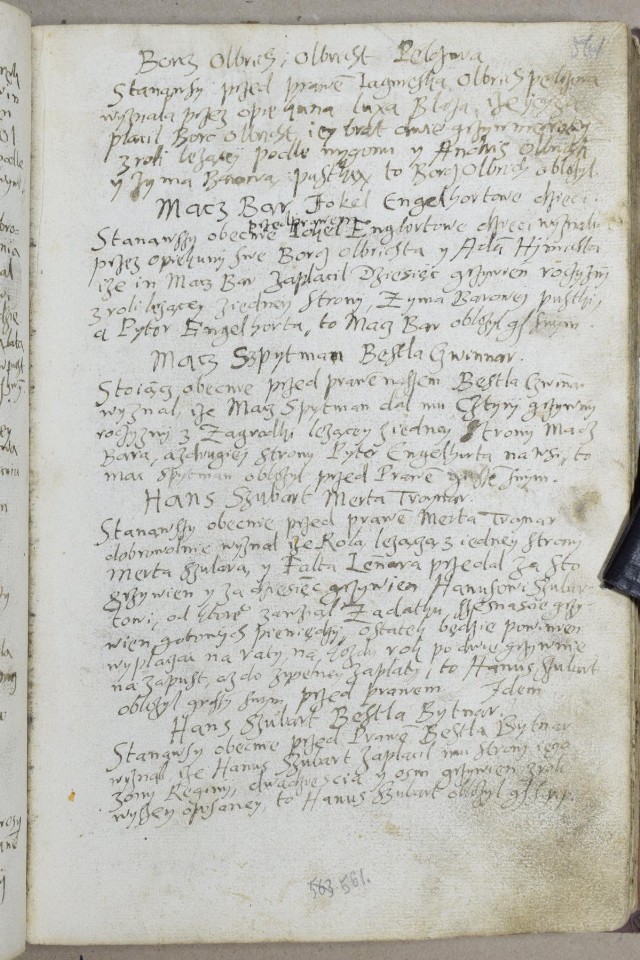 561
Borcz Olbrich, Olbricht Pelczowa
Stanąwsy przed prawē Jagnieska Olbrich
wyznała przez opiekuna Luxa Bloza, ize
płacił Borc Olbricht, iey brat dwie grzywnie
z roli lezącey podle wygonu y Andris Olbrich
y Zyma Barowa pustky to Borcz Olbrich obłozył.
Macz Bar, Jokel Engelhortowe dzieci.
przed prawem
Stanąwszy obecnie Jokel Englortowe dzieci wyznali
przez opiekuny swe Borcz Olbrichta y Adā
ize im Macz Bar zapłacił Dziesięc grzywien
z roli lezącey z iedney strony Zyma Barowey pustki,
a Pyter Engelhorta, to Macz Bar obłozył gr swym.
Macz Szpytman Bestla Gwinnar.
Stoiącz obecnie przed prawē naszem Bestla Gwinar
wyznal, ize Macz Spytman dał mu Cztyry grzywny
z Zagrodki lezącey z iedney strony Macz
Bara, a z drugiey strony Pyter Engelhorta na wsi, to
Macz Spytman obłozył przed Prawē swym.
Hans Szubart Merta Troynar.
Stanąwszy obecnie przed prawē Merta Troynar
dobrowolnie wyznał ize Rolą lezącą z iedney strony
Merta Szulara, y Falta Lenara przedał za sto
grzywien y za dziesięc grzywien Hanusowi Szubar-
towi, od ktorego Zadatku szesnascie grzy-
wien gotowych pieniędzy, ostatek będzie powinien
wypłacac na raty, na kozdy rok po dwie grzywnie
na zapust, az do zupełney zapłaty, to Hanus Szubart
obłozył groszy swym przed prawem Idem
Hans Szubart Bestla Bytnar.
Stanąwsy obecnie przed Prawē Bestla Bytnar
wyznał, ize Hanus Szubart zapłacił imu strony iego
zony Reginy, dwadziescia y osm grzywien z roli
wyszey opisaney, to Hanus Szubart obłozył
563. 561.